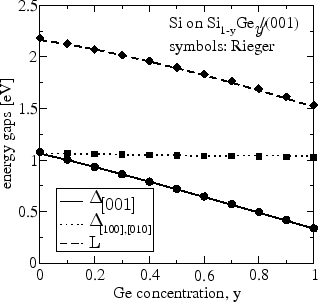 Si on Si1-yGey/(001)
symbols: Rieger
2.5
2
1.5
1
0.5
0
energy gaps [eV]
Δ[001]
Δ[100],[010]
L
0 0.2 0.4 0.6 0.8 1
Ge concentration, y